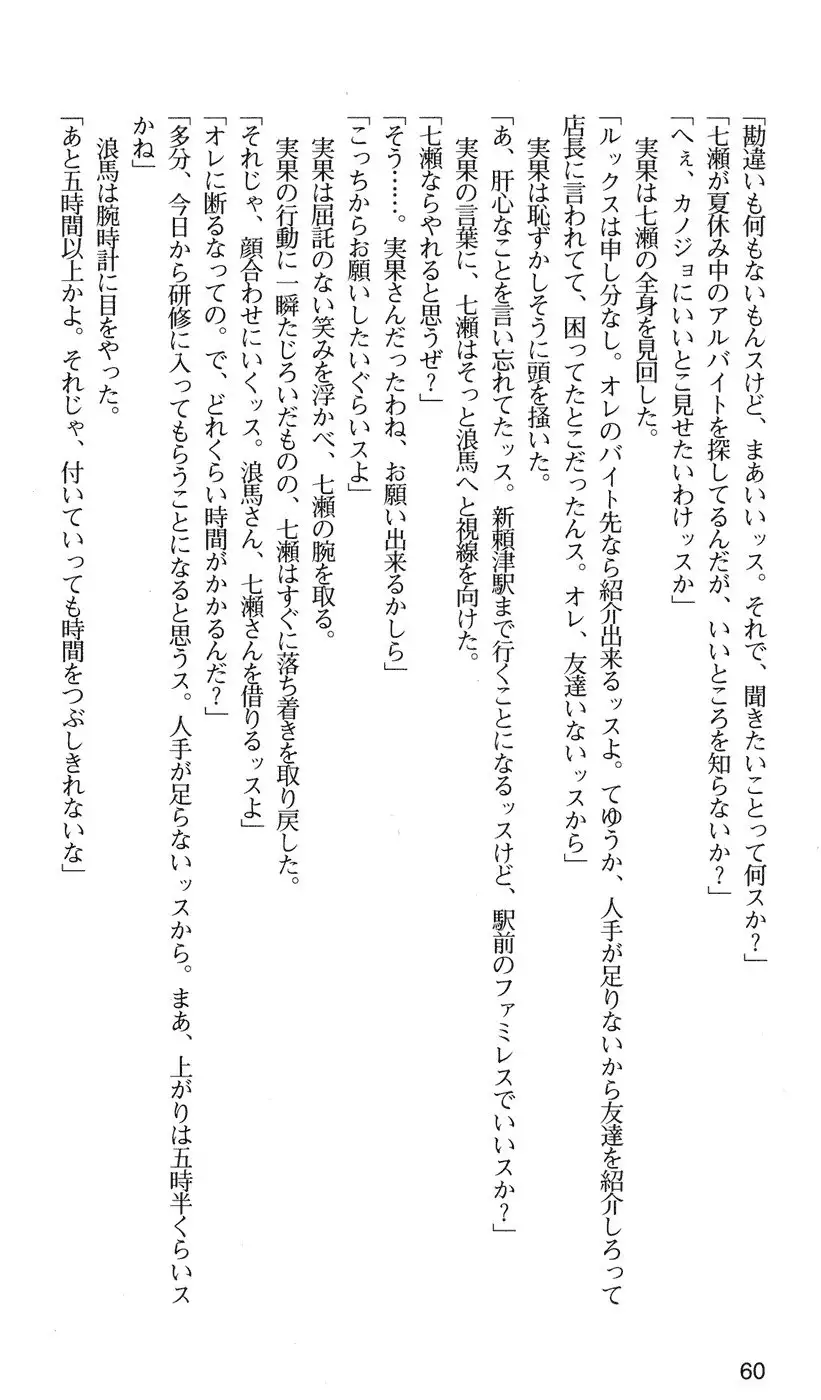 「勘違いも何もないもんスけど、まあいいッス。それで、聞きたいことって何スか？」
「七瀬が夏休み中のアルバイトを探してるんだが、いいところを知らないか？」
「へぇ、カノジョにいいとこ見せたいわけッスか」
実果は七瀬の全身を見回した。
「ルックスは申し分なし。オレのバイト先なら紹介出来るッスよ。てゆうか、人手が足りないから友達を紹介しろって
店長に言われてて、困ってたとこだったんス。オレ、友達いないッスから」
実果は恥ずかしそうに頭を掻いた。
「あ、肝心なことを言い忘れてたッス。新頼津駅まで行くことになるッスけど、駅前のファミレスでいいスか？」
実果の言葉に、七瀬はそっと浪馬へと視線を向けた。
「七瀬ならやれると思うぜ？」
「そう……。実果さんだったわね、お願い出来るかしら」
「こっちからお願いしたいぐらいスよ」
実果は屈託のない笑みを浮かべ、七瀬の腕を取る。
実果の行動に一瞬たじろいだものの、七瀬はすぐに落ち着きを取り戻した。
「それじゃ、顔合わせにいくッス。浪馬さん、七瀬さんを借りるッスよ」
「オレに断るなっての。で、どれくらい時間がかかるんだ？」
「多分、今日から研修に入ってもらうことになると思うス。人手が足らないッスから。まあ、上がりは五時半くらいス
かね」
浪馬は腕時計に目をやった。
「あと五時間以上かよ。それじゃ、付いていっても時間をつぶしきれないな」
60